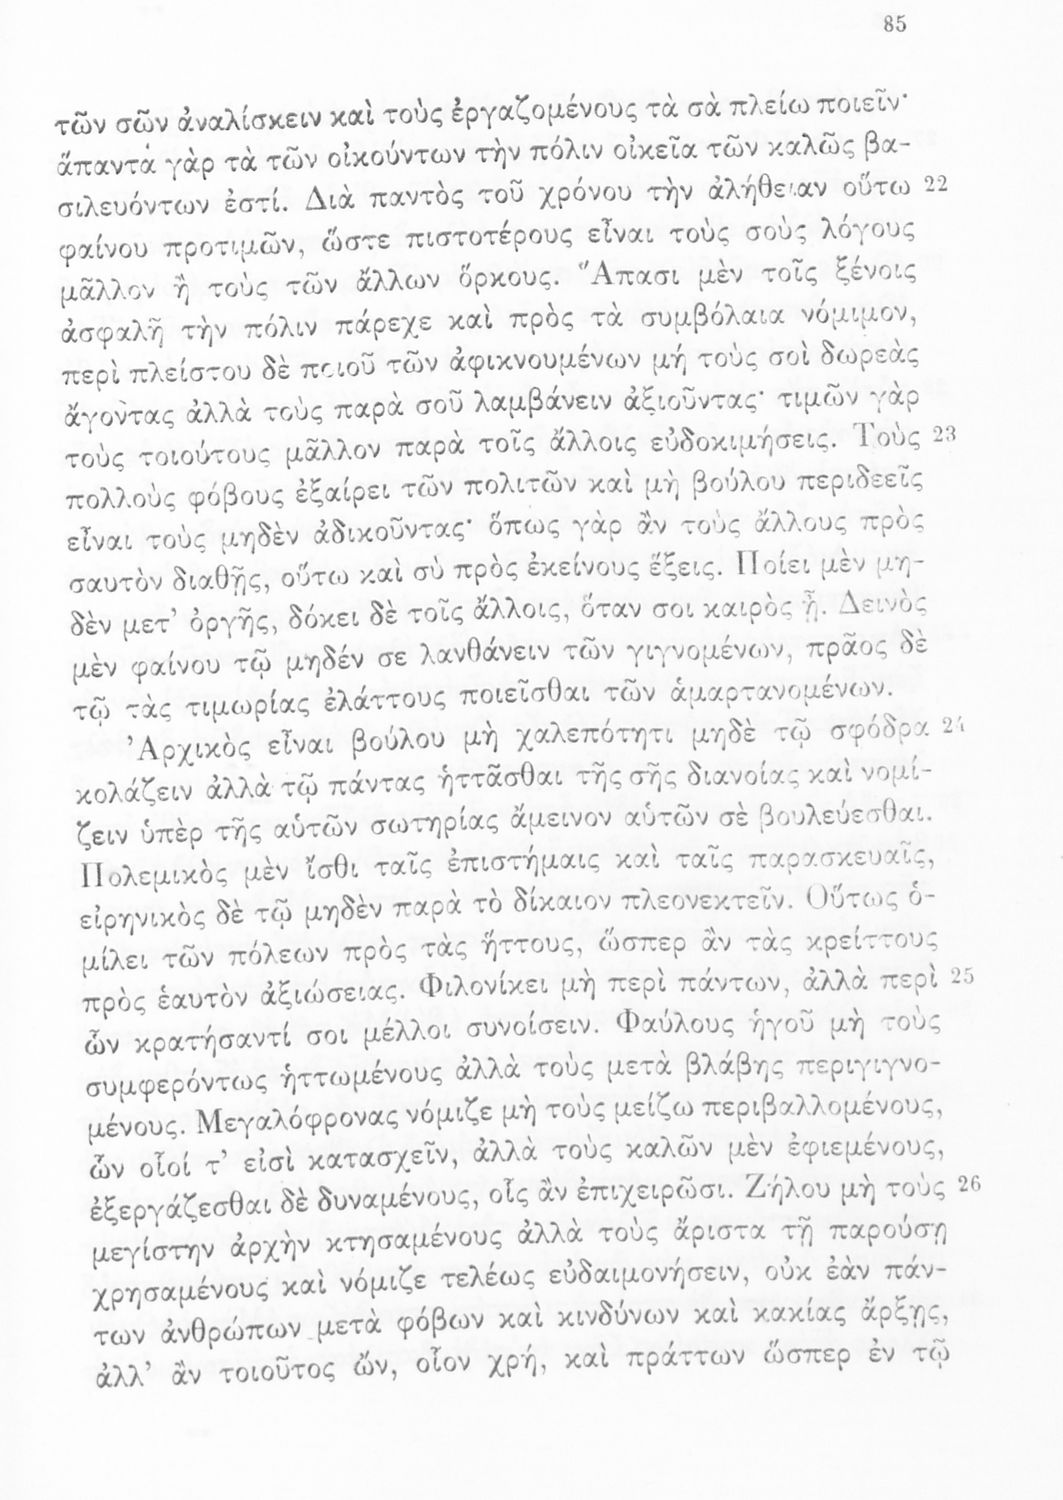 85
τῶν σῶν ἀναλίσκειν καὶ τοὺς ἐργαζομένους τὰ σὰ πλείω ποιεῖν·
ἅπαντα γὰρ τὰ τῶν οἰκούντων τὴν πόλιν οἰκεῖα τῶν καλῶς βα-
σιλευόντων ἐστί. Διὰ παντὸς τοῦ χρόνου τὴν ἀλήθειαν οὕτω 22
φαίνου προτιμῶν, ὥστε πιστοτέρους εἶναι τοὺς σοὺς λόγους
μᾶλλον ἢ τοὺς τῶν ἄλλων ὅρκους. Ἅπασι μὲν τοῖς ξένοις
ἀσφαλῆ τὴν πόλιν πάρεχε καὶ πρὸς τὰ συμβόλαια νόμιμον,
περὶ πλείστου δὲ ποιοῦ τῶν ἀφικνουμένων μή τοὺς σοὶ δωρεὰς
ἄγοντας ἀλλὰ τοὺς παρὰ σοῦ λαμβάνειν ἀξιοῦντας· τιμῶν γὰρ
τοὺς τοιούτους μᾶλλον παρὰ τοῖς ἄλλοις εὐδοκιμήσεις. Τοὺς 23
πολλοὺς φόβους ἐξαίρει τῶν πολιτῶν καὶ μὴ βούλου περιδεεῖς
εἶναι τοὺς μηδὲν ἀδικοῦντας· ὅπως γὰρ ἂν τοὺς ἄλλους πρὸς
σαυτὸν διαθῇς, οὕτω καὶ σὺ πρὸς ἐκείνους ἕξεις. Ποίει μὲν μη-
δὲν μετ’ ὀργῆς, δόκει δὲ τοῖς ἄλλοις, ὅταν σοι καιρὸς ᾖ. Δεινὸς
μὲν φαίνου τῷ μηδέν σε λανθάνειν τῶν γιγνομένων, πρᾶος δὲ
τῷ τὰς τιμωρίας ἐλάττους ποιεῖσθαι τῶν ἁμαρτανομένων.
Ἀρχικὸς εἶναι βούλου μὴ χαλεπότητι μηδὲ τῷ σφόδρα 24
κολάζειν ἀλλὰ τῷ πάντας ἡττᾶσθαι τῆς σῆς διανοίας καὶ νομί-
ζειν ὑπὲρ τῆς αὑτῶν σωτηρίας ἄμεινον αὑτῶν σὲ βουλεύεσθαι.
Πολεμικὸς μὲν ἴσθι ταῖς ἐπιστήμαις καὶ ταῖς παρασκευαῖς,
εἰρηνικὸς δὲ τῷ μηδὲν παρὰ τὸ δίκαιον πλεονεκτεῖν. Οὕτως ὁ-
μίλει τῶν πόλεων πρὸς τὰς ἥττους, ὥσπερ ἂν τὰς κρείττους
πρὸς ἑαυτὸν ἀξιώσειας. Φιλονίκει μὴ περὶ πάντων, ἀλλὰ περὶ 25
ὧν κρατήσαντί σοι μέλλοι συνοίσειν. Φαύλους ἡγοῦ μὴ τοὺς
συμφερόντως ἡττωμένους ἀλλὰ τοὺς μετὰ βλάβης περιγιγνο-
μένους. Μεγαλόφρονας νόμιζε μὴ τοὺς μείζω περιβαλλομένους,
ὧν οἷοί τ’ εἰσὶ κατασχεῖν, ἀλλὰ τοὺς καλῶν μὲν ἐφιεμένους,
ἐξεργάζεσθαι δὲ δυναμένους, οἷς ἂν ἐπιχειρῶσι. Ζήλου μὴ τοὺς 26
μεγίστην ἀρχὴν κτησαμένους ἀλλὰ τοὺς ἄριστα τῇ παρούσῃ
χρησαμένους καὶ νόμιζε τελέως εὐδαιμονήσειν, οὐκ ἐὰν πάν-
των ἀνθρώπων μετὰ φόβων καὶ κινδύνων καὶ κακίας ἄρξῃς,
ἀλλ’ ἂν τοιοῦτος ὤν, οἷον χρή, καὶ πράττων ὥσπερ ἐν τῷ